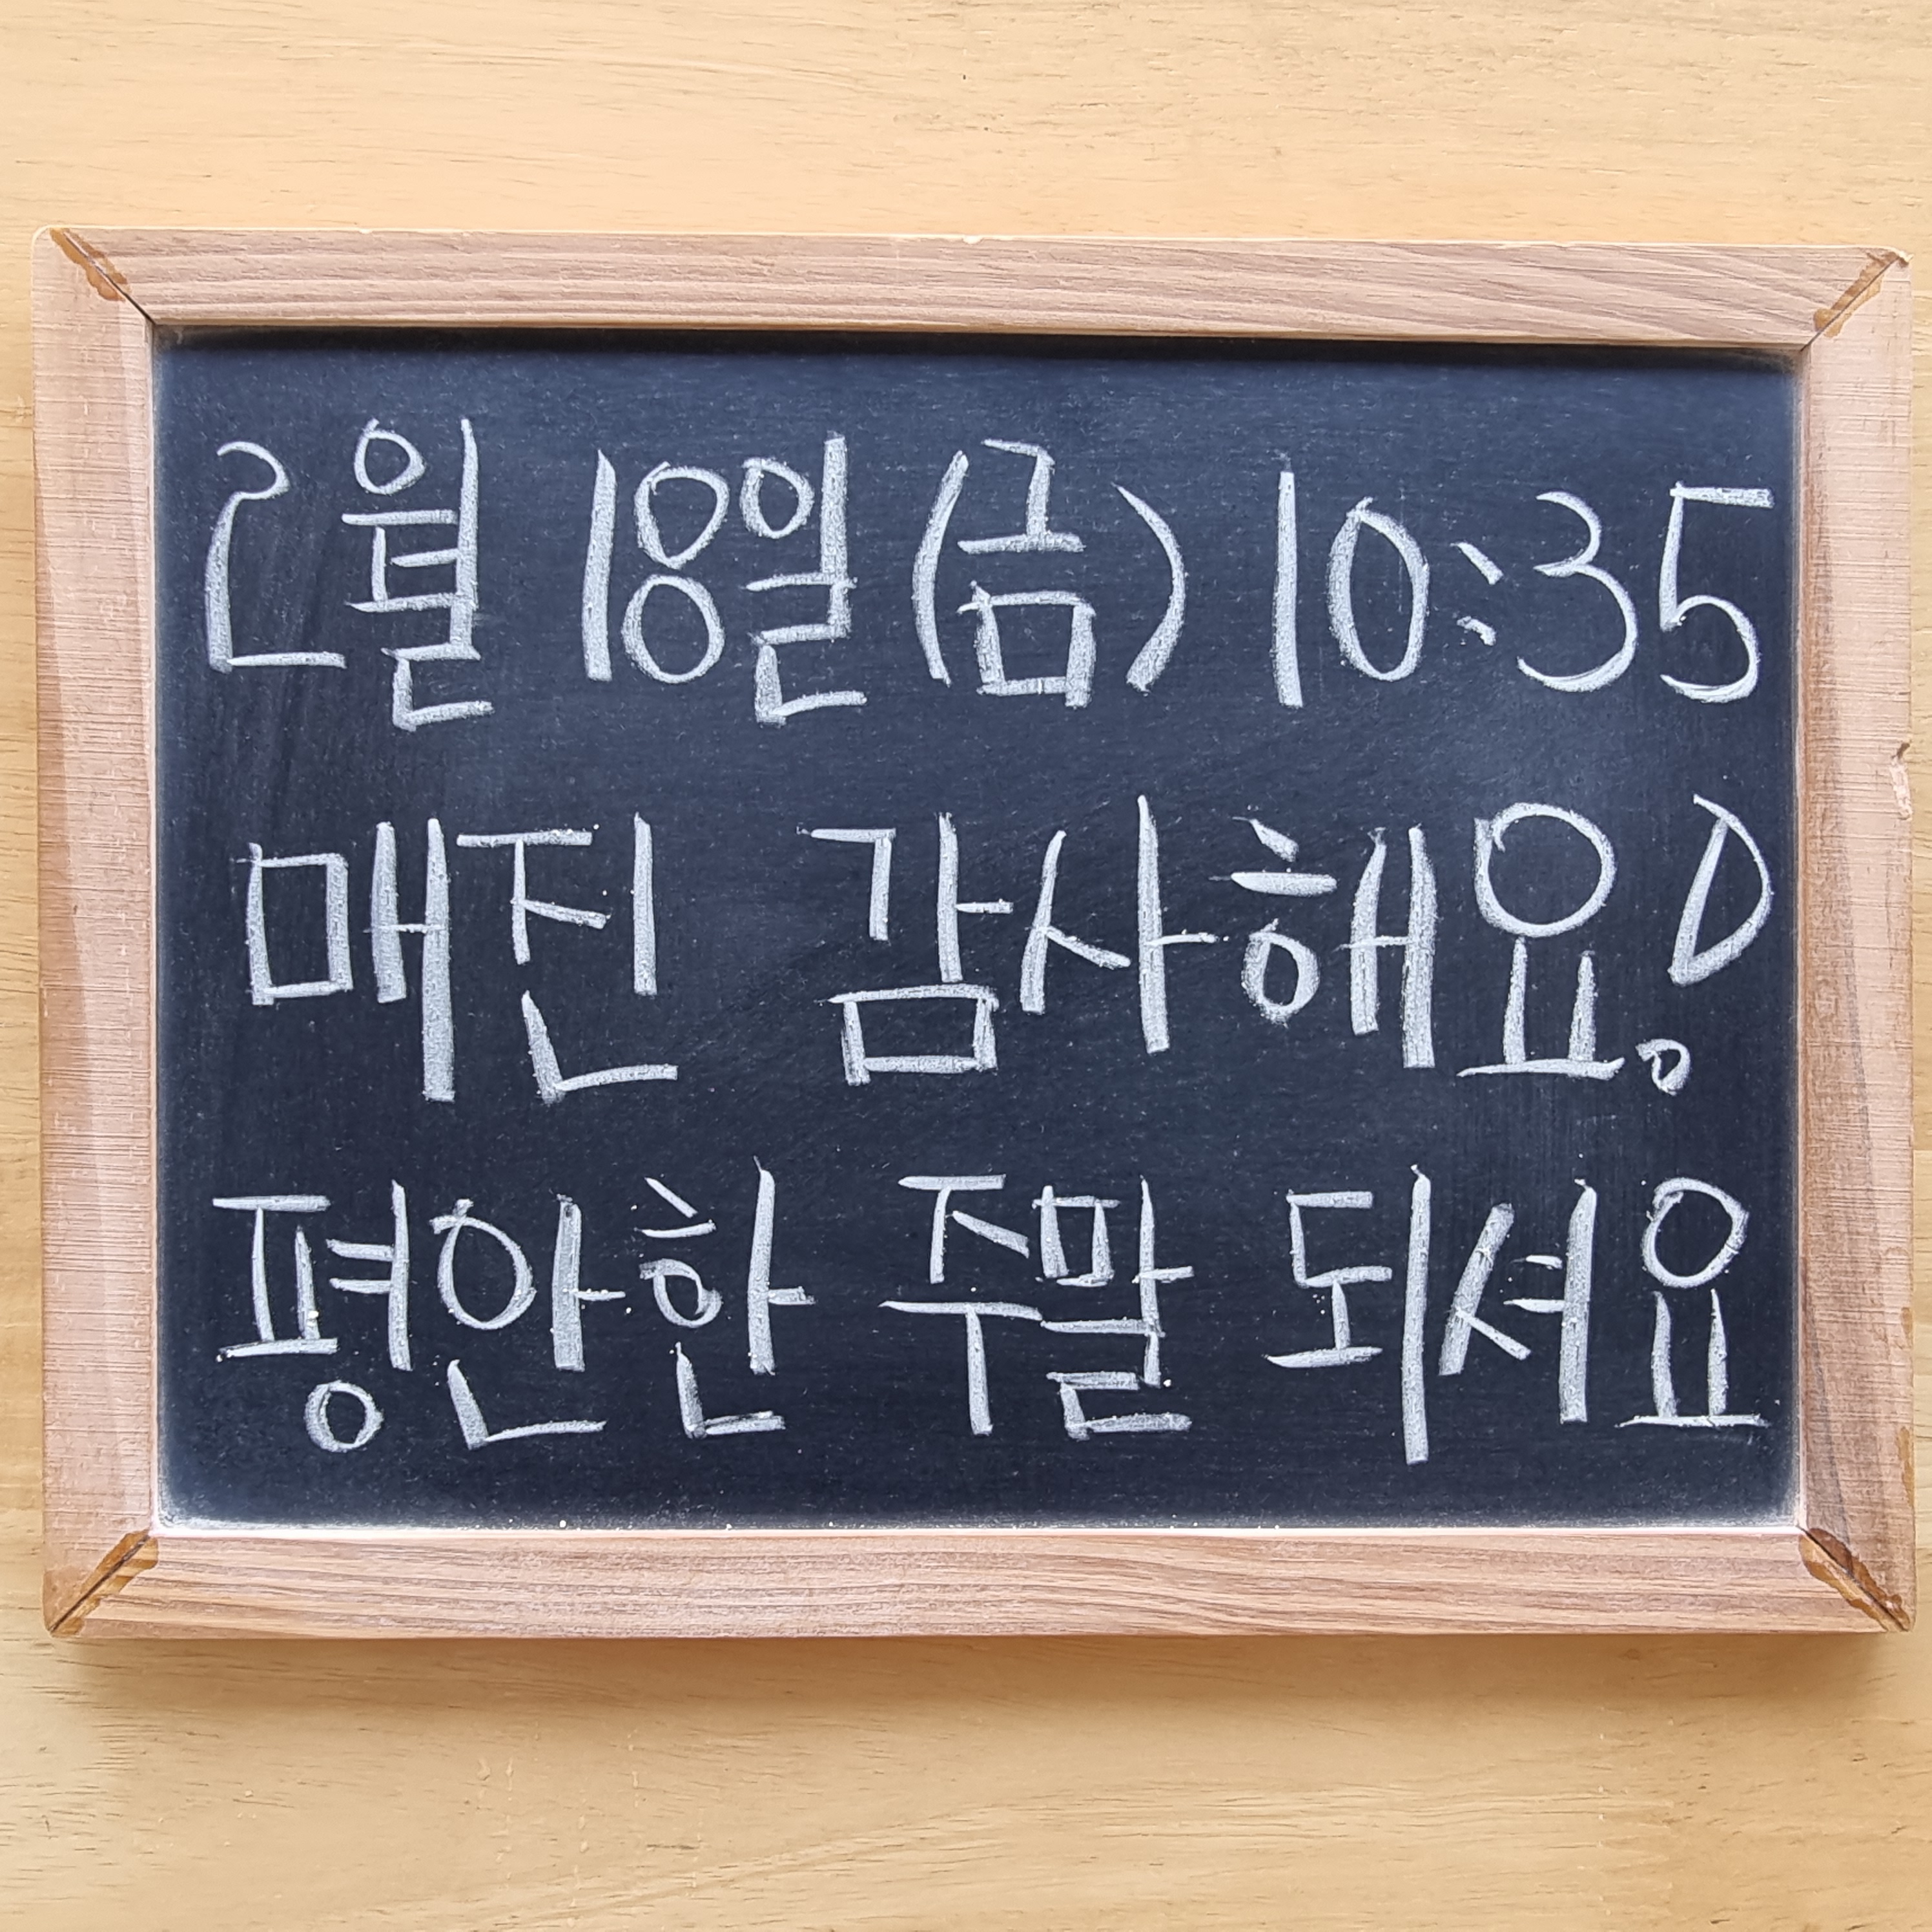 2월 18일(금) 10:35
매진 감사해요!
평안한 주말 되셔요